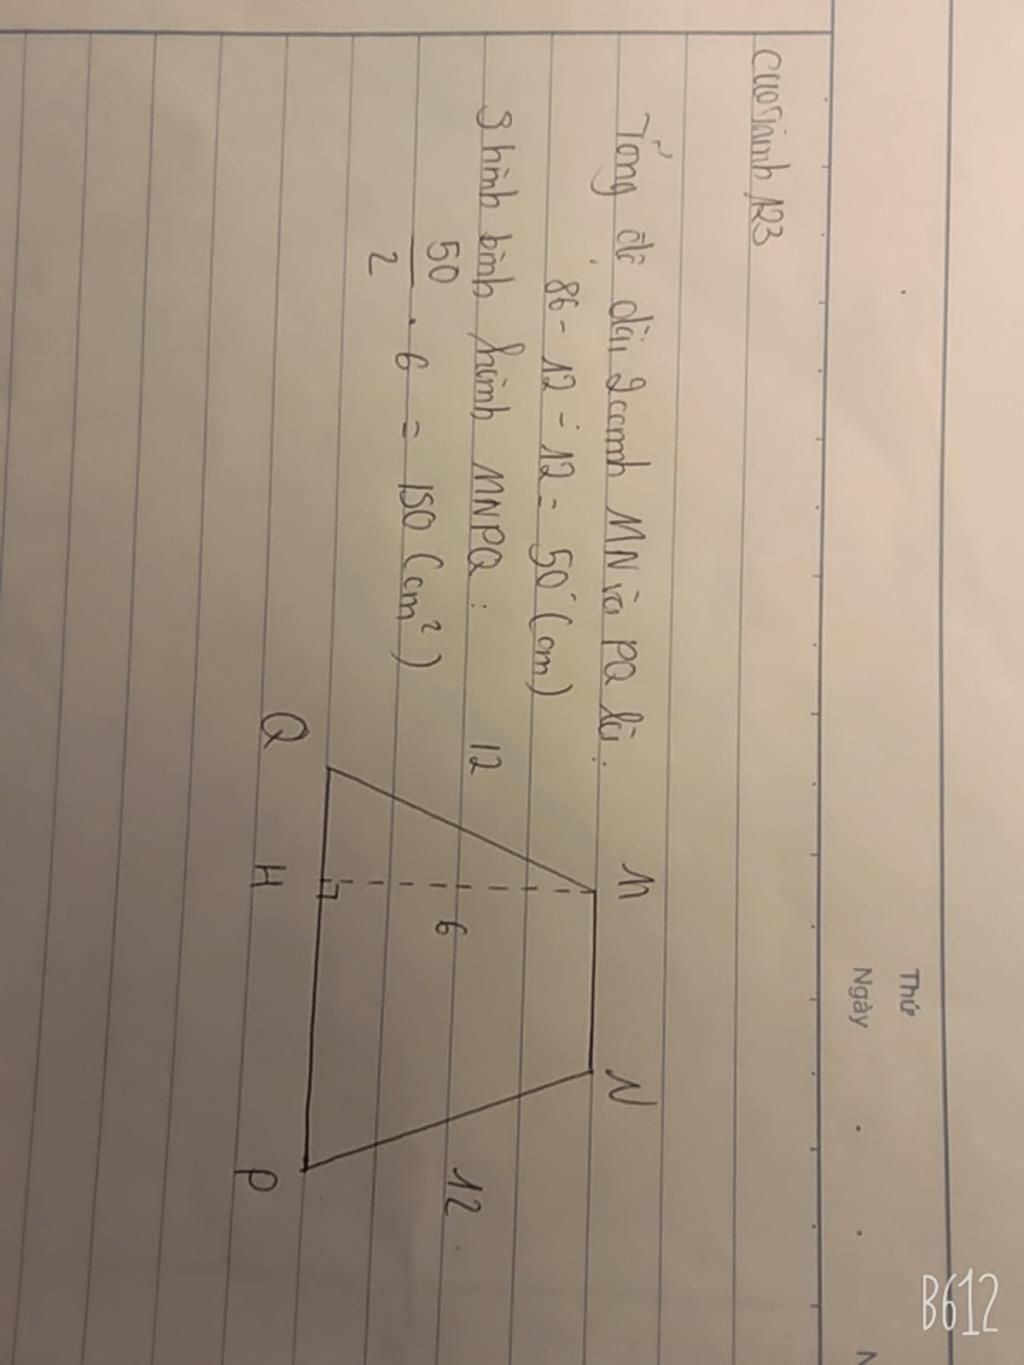 Thứ
Ngày
cuorinh123
Tổng độ dài 2 cạnh MN và PQ là:
86 - 12 - 12 = 50 (cm)
S hình bình hành MNPQ:
50
2
. 6 = 150 (cm²)
M
N
12
6
12
Q
H
P
B612